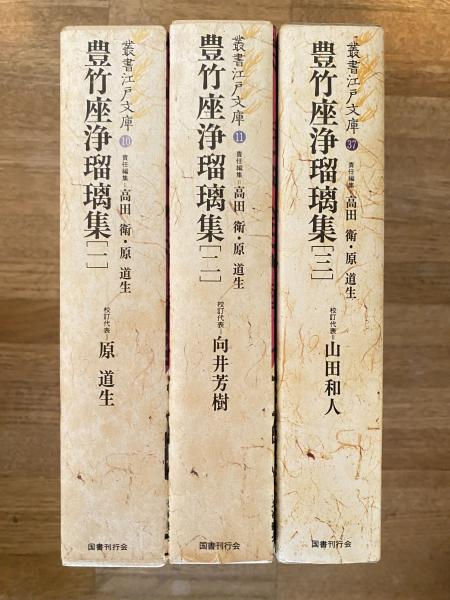 叢書江戸文庫 10 責任編集=高田 衛・原 道生
豊竹座浄瑠璃集[一]
校訂代表=原 道生
国書刊行会
叢書江戸文庫 11 責任編集=高田 衛・原 道生
豊竹座浄瑠璃集[二]
校訂代表=向井芳樹
国書刊行会
叢書江戸文庫 37 責任編集=高田 衛・原 道生
豊竹座浄瑠璃集[三]
校訂代表=山田和人
国書刊行会